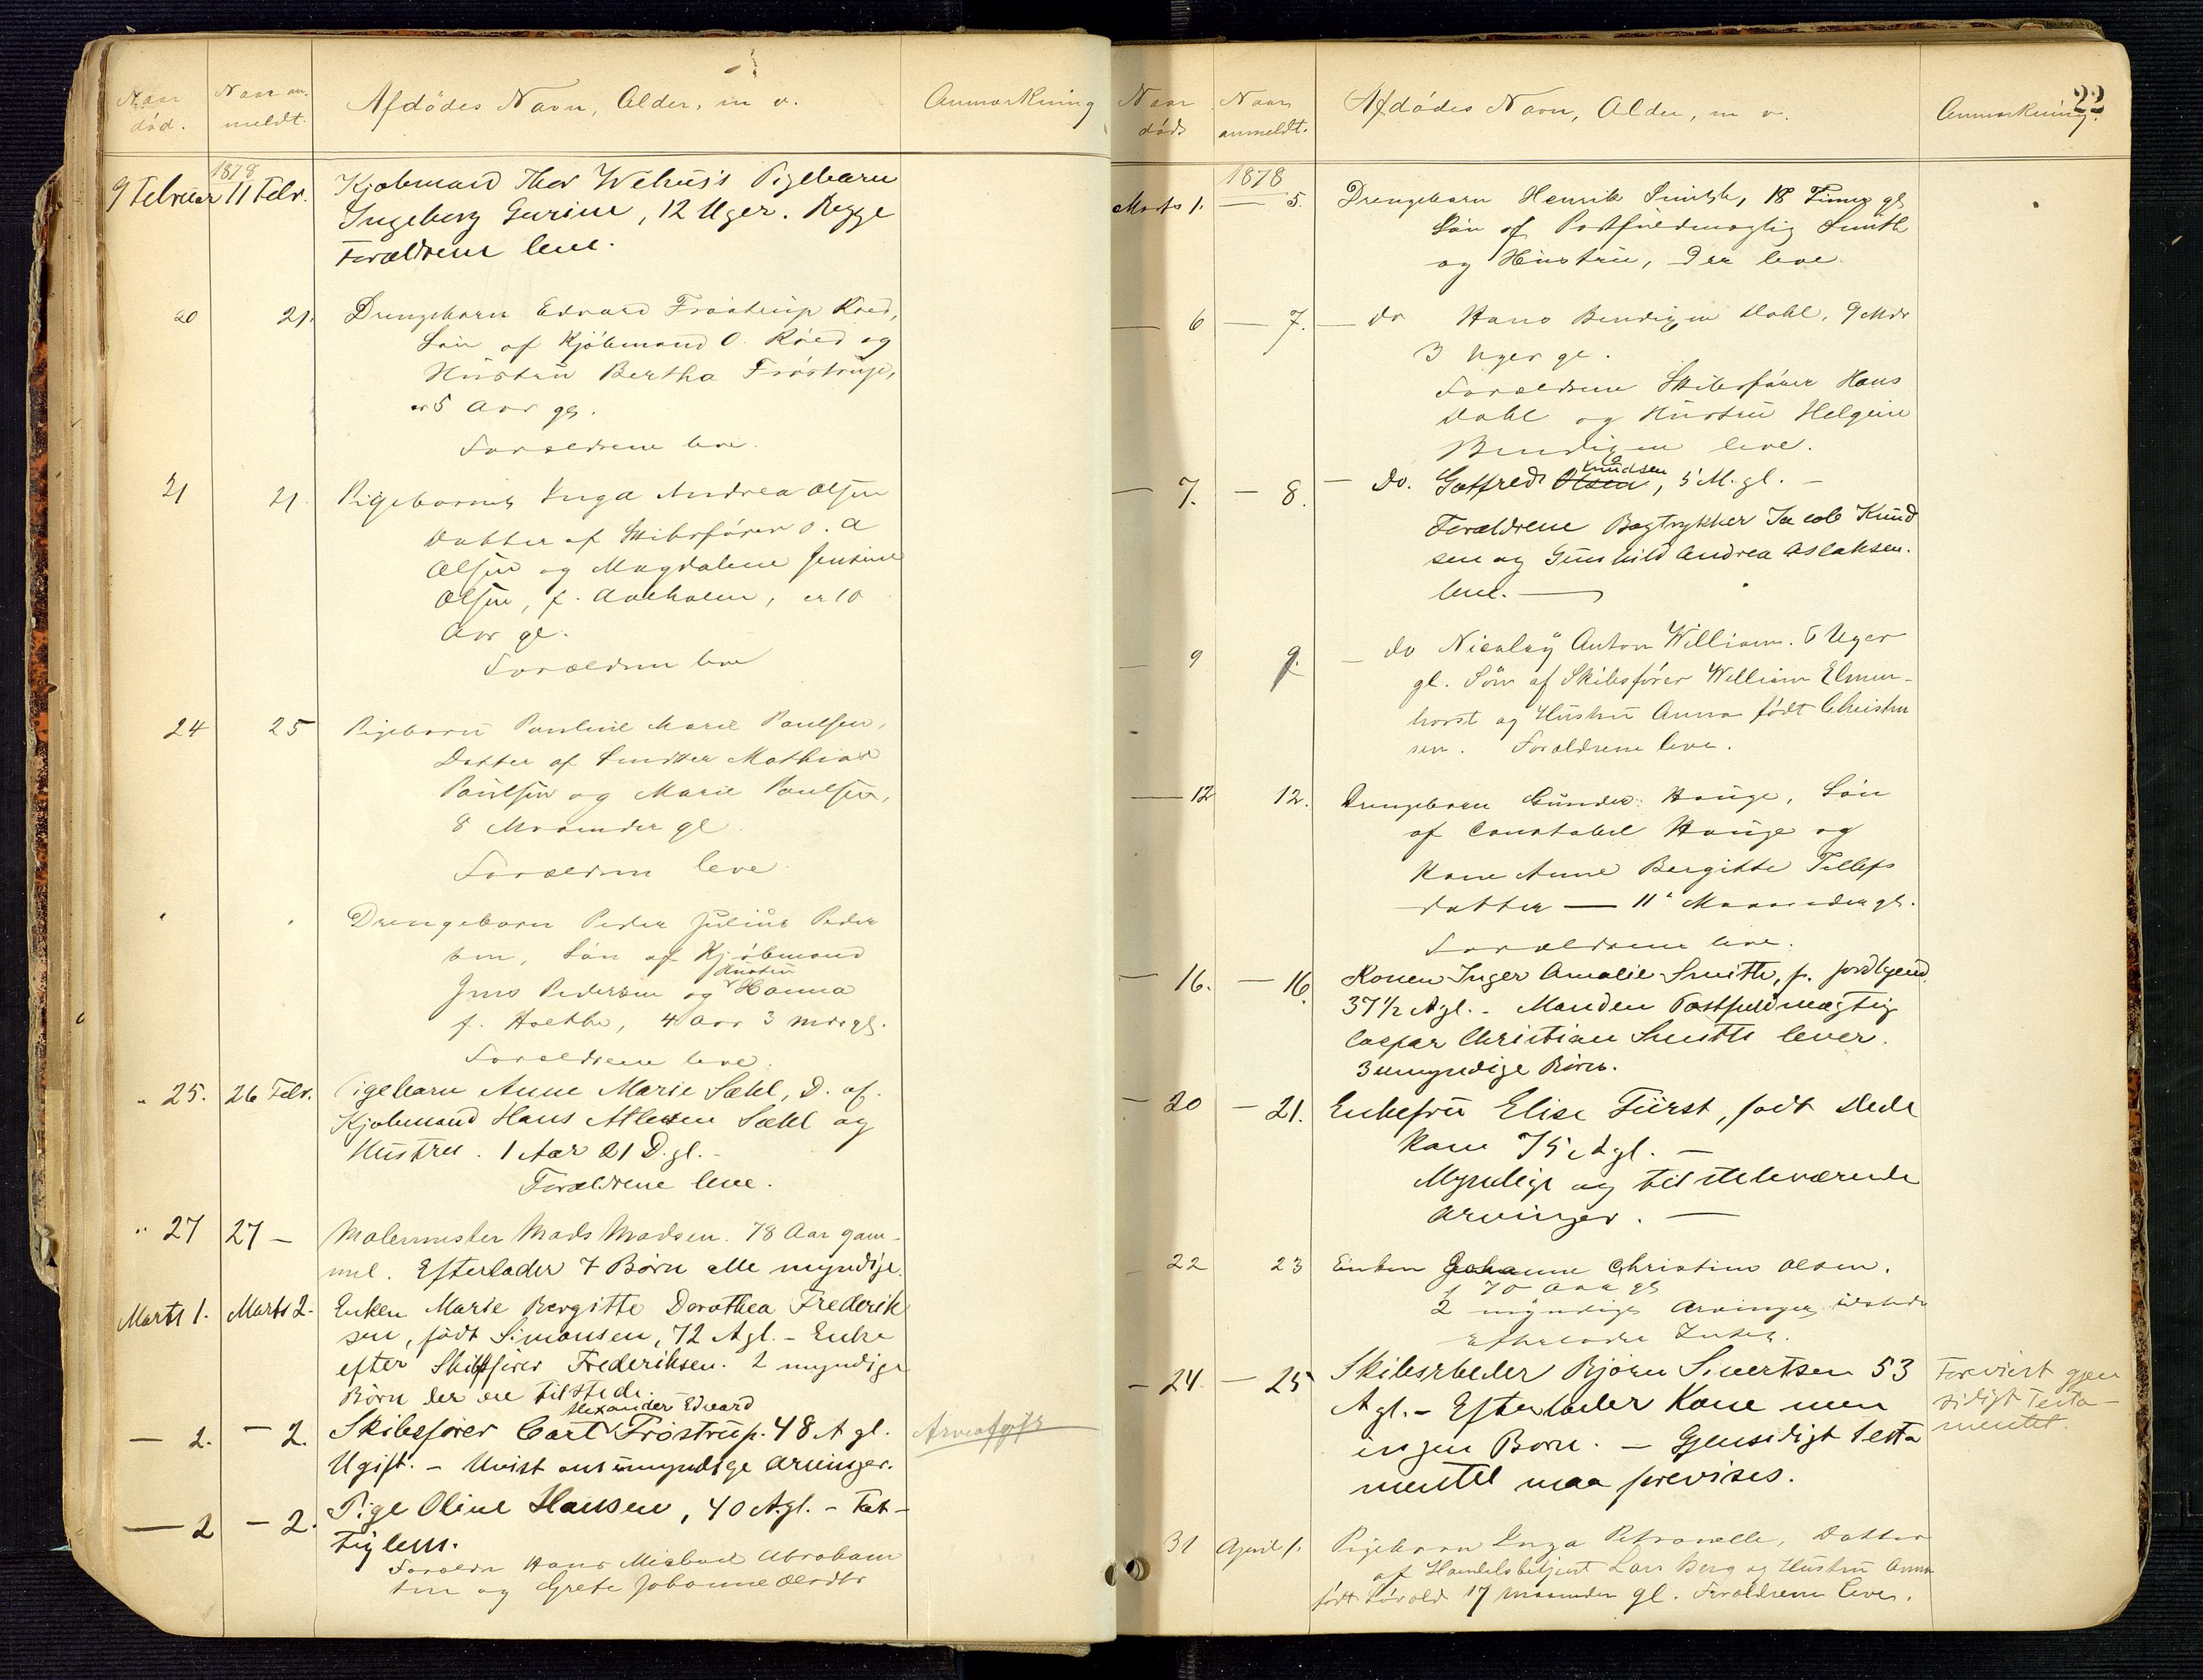 Naar død.
Naar anmeldt.
Afdødes Navn, Alder, m v.
Anmærkning
1878
9 Februar 11 Febr. Kjøbmand Thor Wehus's Pigebarn
Ingeborg Gurine, 12 Uger. Begge
Forældrene leve.
20 21. Drengebarn Edvard Frøstrup Røed,
Søn af Kjøbmand O. Røed og
Hustru Bertha Frøstrup,
5 Aar gl.
Forældrene leve.
21 21. Pigebarnet Inga Andrea Olsen
Datter af Skibsfører O. A
Olsen og Magdalene Jensine
Olsen, f. Aaeholm, 10
Aar gl.
Forældren leve
24 25 Pigebarn Pauline Marie Paulsen,
Datter af Snedker Mathias
Paulsen og Marie Paulsen,
8 Maaneder gl
Forældren leve
" " Drengebarn Peder Julius Peder
sen, Søn af Kjøbmand
Jens Pedersen og Hustru Hanna
f. Holthe, 4 Aar 3 Mdr gl.
Forældrene leve.
" 25. 26 Febr. Pigebarn Anne Marie Sæhl, D. af.
Kjøbmand Hans Atlesen Sæhl og
Hustru. 1 Aar 21 D. gl. -
Forældrene leve.
" 27 27 - Malermester Mads Madsen. 78 Aar gam-
mel. Efterlader 7 Børn alle myndige.
Marts 1. Marts 2. Enken Marie Bergitte Dorothea Frederik
sen, født Simonsen, 72 A gl. - Enke
efter Skibsfører Frederiksen. 2 myndige
Børn der ere tilstede.
Alexander Edvard
— 2. — 2. Skibsfører Carl Frøstrup. 48 A gl. Arveafgift
Ugift. - Uvist om umyndige Arvinger.
— 2 — 2. Pige Oline Hansen, 40 A. gl. - Fat-
tiglem.
Forældr Hans Michael Abraham
sen og Grete Johanne Olsdtr
22
Naar død
Naar anmeldt.
Afdødes Navn, Alder, m v.
Anmærkning.
1878
Marts 1. — 5. Drengebarn Henrik Smith, 18 Timer gl
Søn af Postfuldmægtig Smith
og Hustru, Der leve.
— 6 — 7. — do Hans Bendixen Dahl, 9 Mdr
3 Uger gl.
Forældrene Skibsfører Hans
Dahl og Hustru Helgine
Bendixen leve.
— 7. — 8. — Do. Gotfred Olsen Knudsen, 5 M. gl. -
Forældrene Bogtrykker Jacob Knud
sen og Gunhild Andrea Aslaksen.
leve. —
— 9 9. — do Nicolay Anton William. 6 Uger
gl. Søn af Skibsfører William Elmen-
horst og Hustru Anna født Christen
sen. Forældrene leve.
— 12 12. Drengebarn Gunder Hauge, Søn
af Constabel Hauge og
Kone Anne Bergitte Tellefs
datter — 11 Maaneder gl.
Forældrene leve.
— 16. — 16. Konen Inger Amalie Smith, f.
37 1/2 A gl. - Manden Postfuldmægtig
Caspar Christian Smith lever.
3 umyndige Børn.
— 20 — 21. Enkefru Elise Fürst, født Dede
kam 75 A gl. —
Myndige og tilstedeværende
Arvinger. —
22 23 Enken Johanne Christine Olsen.
70 Aar gl
2 myndige Arvinger, tilstede
Efterlader Intet.
— 24. — 25 Skibsrheder Bjørn Sivertsen 53
A gl. - Efterlader Kone men
ingen Børn. — Gjensidigt Testa
mentet maa forevises.
Forevist gjen
sidigt Testa-
mentet.
31 April 1. Pigebarn Inga Petronelle, Datter
af Handelsbetjent Lars Berg og Hustru Anna
født Løvold 17 Maaneder gl. Forældrene lever.